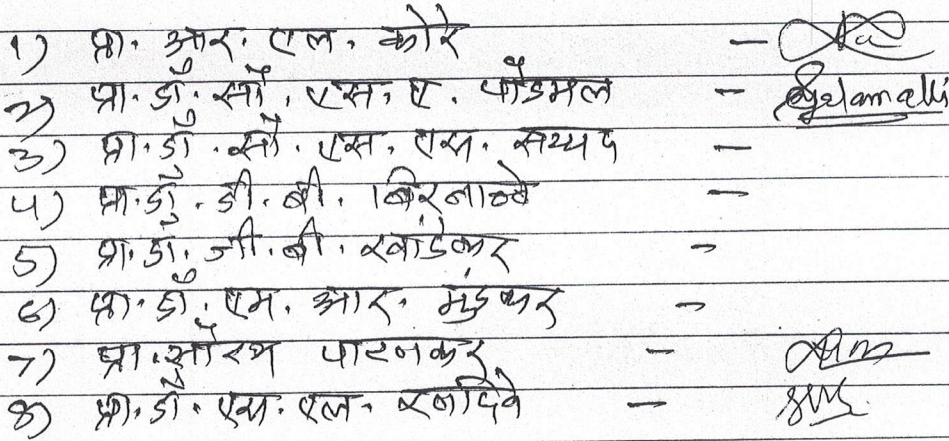 1) प्रा. आर. एल. कोरे -
2) प्रा. डॉ. सौ. एस. ए. पोडमल -
3) प्रा. डॉ. सौ. एस. एस. सय्यद -
4) प्रा. डॉ. डी. बी. बिरनाळे -
5) प्रा. डॉ. जी. बी. खांडेकर -
6) प्रा. डॉ. एम. आर. मुंडकर -
7) प्रा. सौरभ पाटणकर -
8) प्रा. डॉ. एस. एल. रनदिवे -